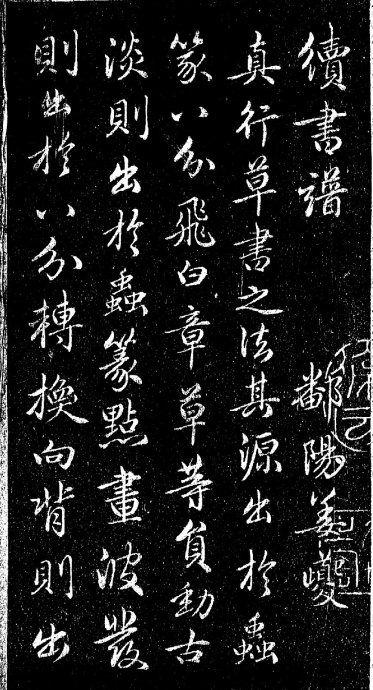 續書譜 鄱陽姜夔
真行草書之法其源出於蟲
篆八分飛白章草等員勁古
淡則出於蟲篆點畫波發
則出於八分轉換向背則出